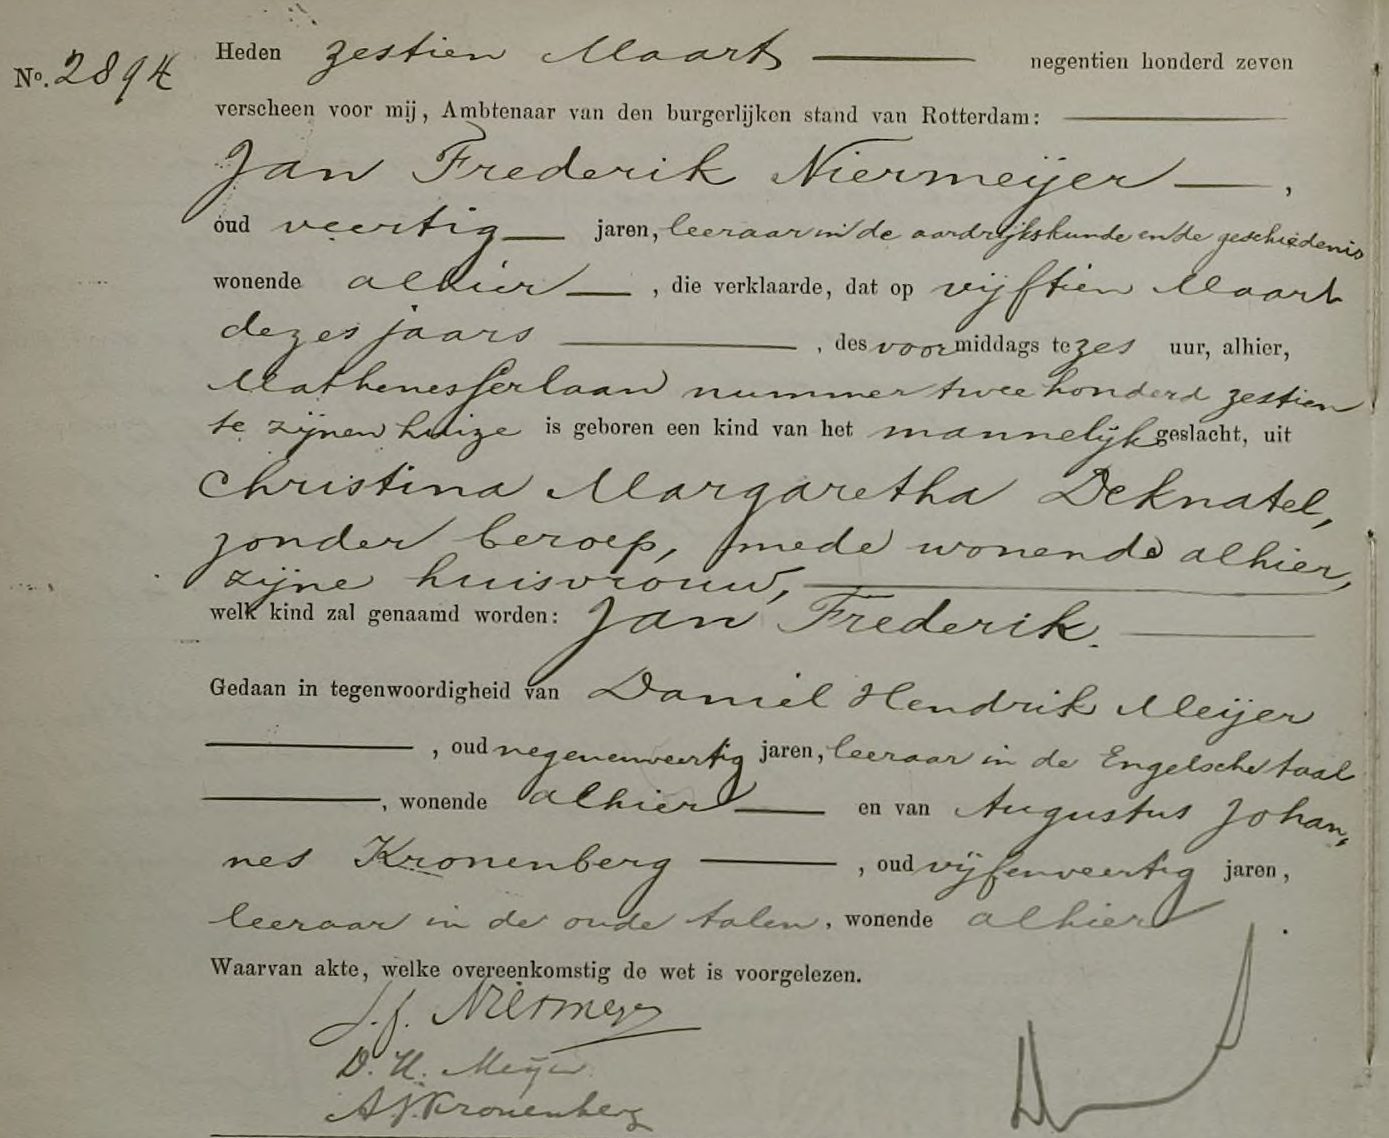 No. 2894
Heden zestien Maart negentien honderd zeven
verscheen voor mij, Ambtenaar van den burgerlijken stand van Rotterdam:
Jan Frederik Niermeijer,
oud veertig jaren, leeraar in de aardrijkskunde en de geschiedenis
wonende alhier, die verklaarde, dat op vijftien Maart
dezes jaars, des voormiddags te zes uur, alhier,
Mathenesserlaan nummer twee honderd zestien
te zijnen huize is geboren een kind van het mannelijk geslacht, uit
Christina Margaretha Deknatel,
zonder beroep, mede wonende alhier,
zijne huisvrouw,
welk kind zal genaamd worden: Jan Frederik.
Gedaan in tegenwoordigheid van Daniel Hendrik Meijer
, oud negenenveertig jaren, leeraar in de Engelsche taal
, wonende alhier en van Augustus Johan„
nes Kronenberg, oud vijfenveertig jaren,
leeraar in de oude talen, wonende alhier.
Waarvan akte, welke overeenkomstig de wet is voorgelezen.
J.F. Niermeyer
D. H. Meijer
A J Kronenberg